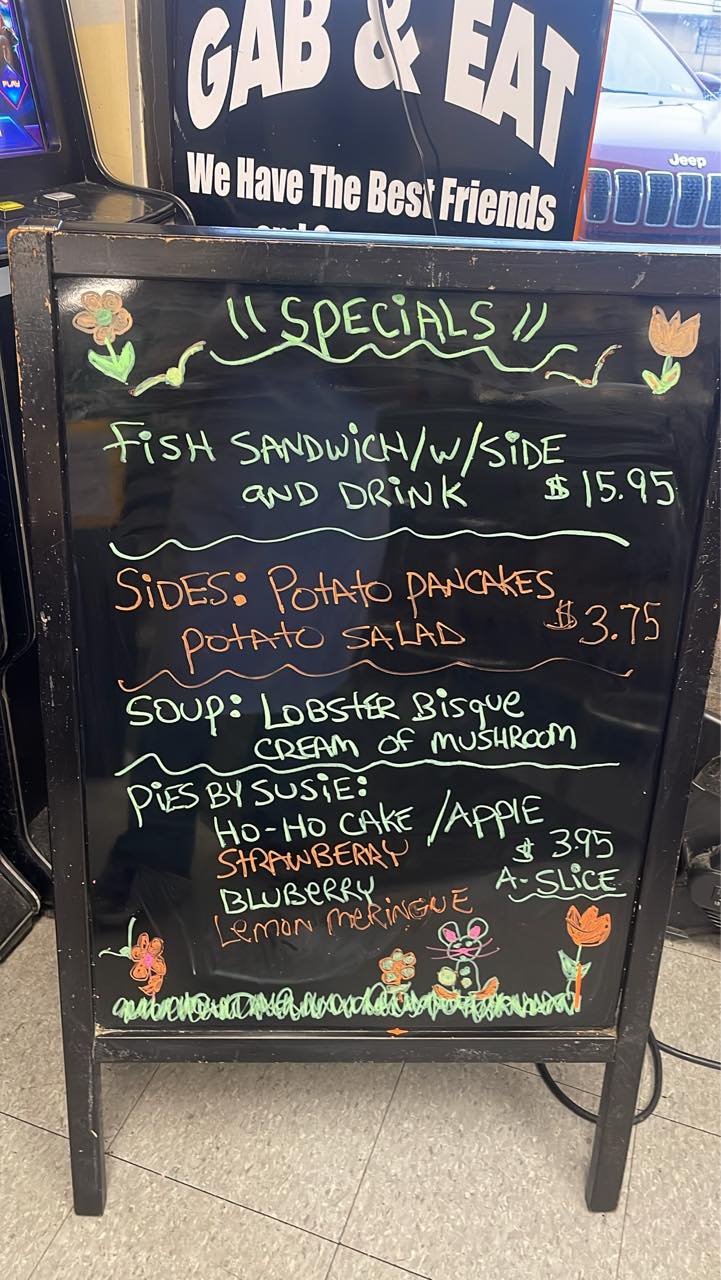 PLAY
GAB & EAT
We Have The Best Friends
Jeep
"SPECiALS"
FiSH SANDWiCH/W/SiDE
AND DRiNK $15.95
SiDES: POTATO PANCAKES
POTATO SALAD $3.75
SOUP: LOBSTER BiSque
CREAM OF MUSHROOM
PiES BY SUSiE:
HO-HO CAKE /APPLE
STRAWBERRY $3.95
BLUBERRY A-SLiCE
LEMON MERiNGUE